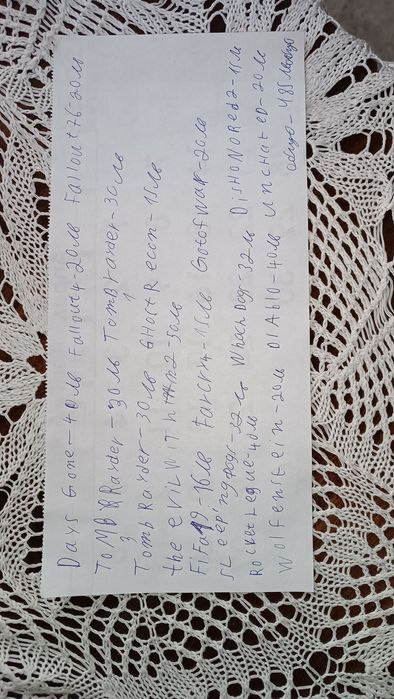 Days Gone-40лв Fallout4-20лв Fallout76-20лв
TOMB Rayder-30лв TOMB rayder-30лв
3 1
Tomb Rayder-30лв GHost Recon-15лв
the evil with in2-30лв
FiFa19-15лв farcry4-15лв Gotofwar-20лв
SLeepingdogs- Whachdogs-32лв DisHONORed2-15лв
Rocket League-40лв
Wolfenstein-20лв DiAblo-40лв UncHateD-20лв
общо-485